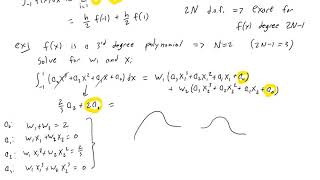 2N d.o.f. => exact for
= h/2 f(-1) + h/2 f(1)
f(x) degree 2N-1
ex) f(x) is a 3rd degree polynomial => N=2 (2N-1=3)
Solve for wi and xi
∫₋₁¹ (a₃x³+a₂x²+a₁x+a₀)dx = w₁(a₃x₁³+a₂x₁²+a₁x₁+a₀)
+ w₂(a₃x₂³+a₂x₂²+a₁x₂+a₀)
2/3 a₂ + 2a₀ =
a₀: w₁+w₂ = 2
a₁: w₁x₁+w₂x₂ = 0
a₂: w₁x₁²+w₂x₂² = 2/3
a₃: w₁x₁³+w₂x₂³ = 0